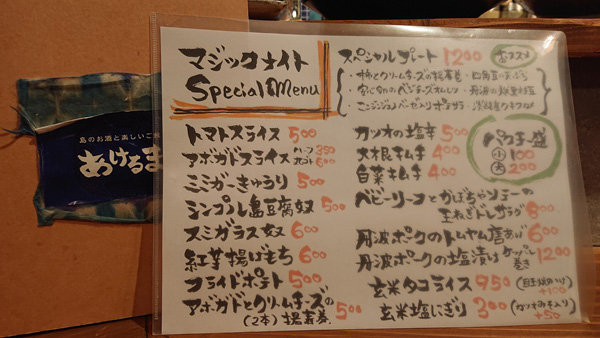 島のお酒と楽しいご
あけるま
マジックナイト
Special Menu
トマトスライス 500
アボガドスライス ハーフ 350
ホール 600
ミミガーきゅうり 500
シンプル島豆腐奴 500
スミガラス奴 600
紅芋揚げもち 600
フライドポテト 500
アボガドとクリームチーズの
(2本) 揚春巻 500
スペシャルプレート 1200 おススメ
カツオの塩辛 500
大根キムチ 400
白菜キムチ 400
ベビーリーフとかぼちゃソテーの
玉ねぎドレサラダ 800
丹波ポークのトムヤム唐あげ 600
丹波ポークの塩漬け ケッパー
巻き 1200
玄米タコライス 950 (目玉焼のり)
+100
玄米塩にぎり 300 (カツオみそ入り)
+50
パクチー盛
小 100
大 200